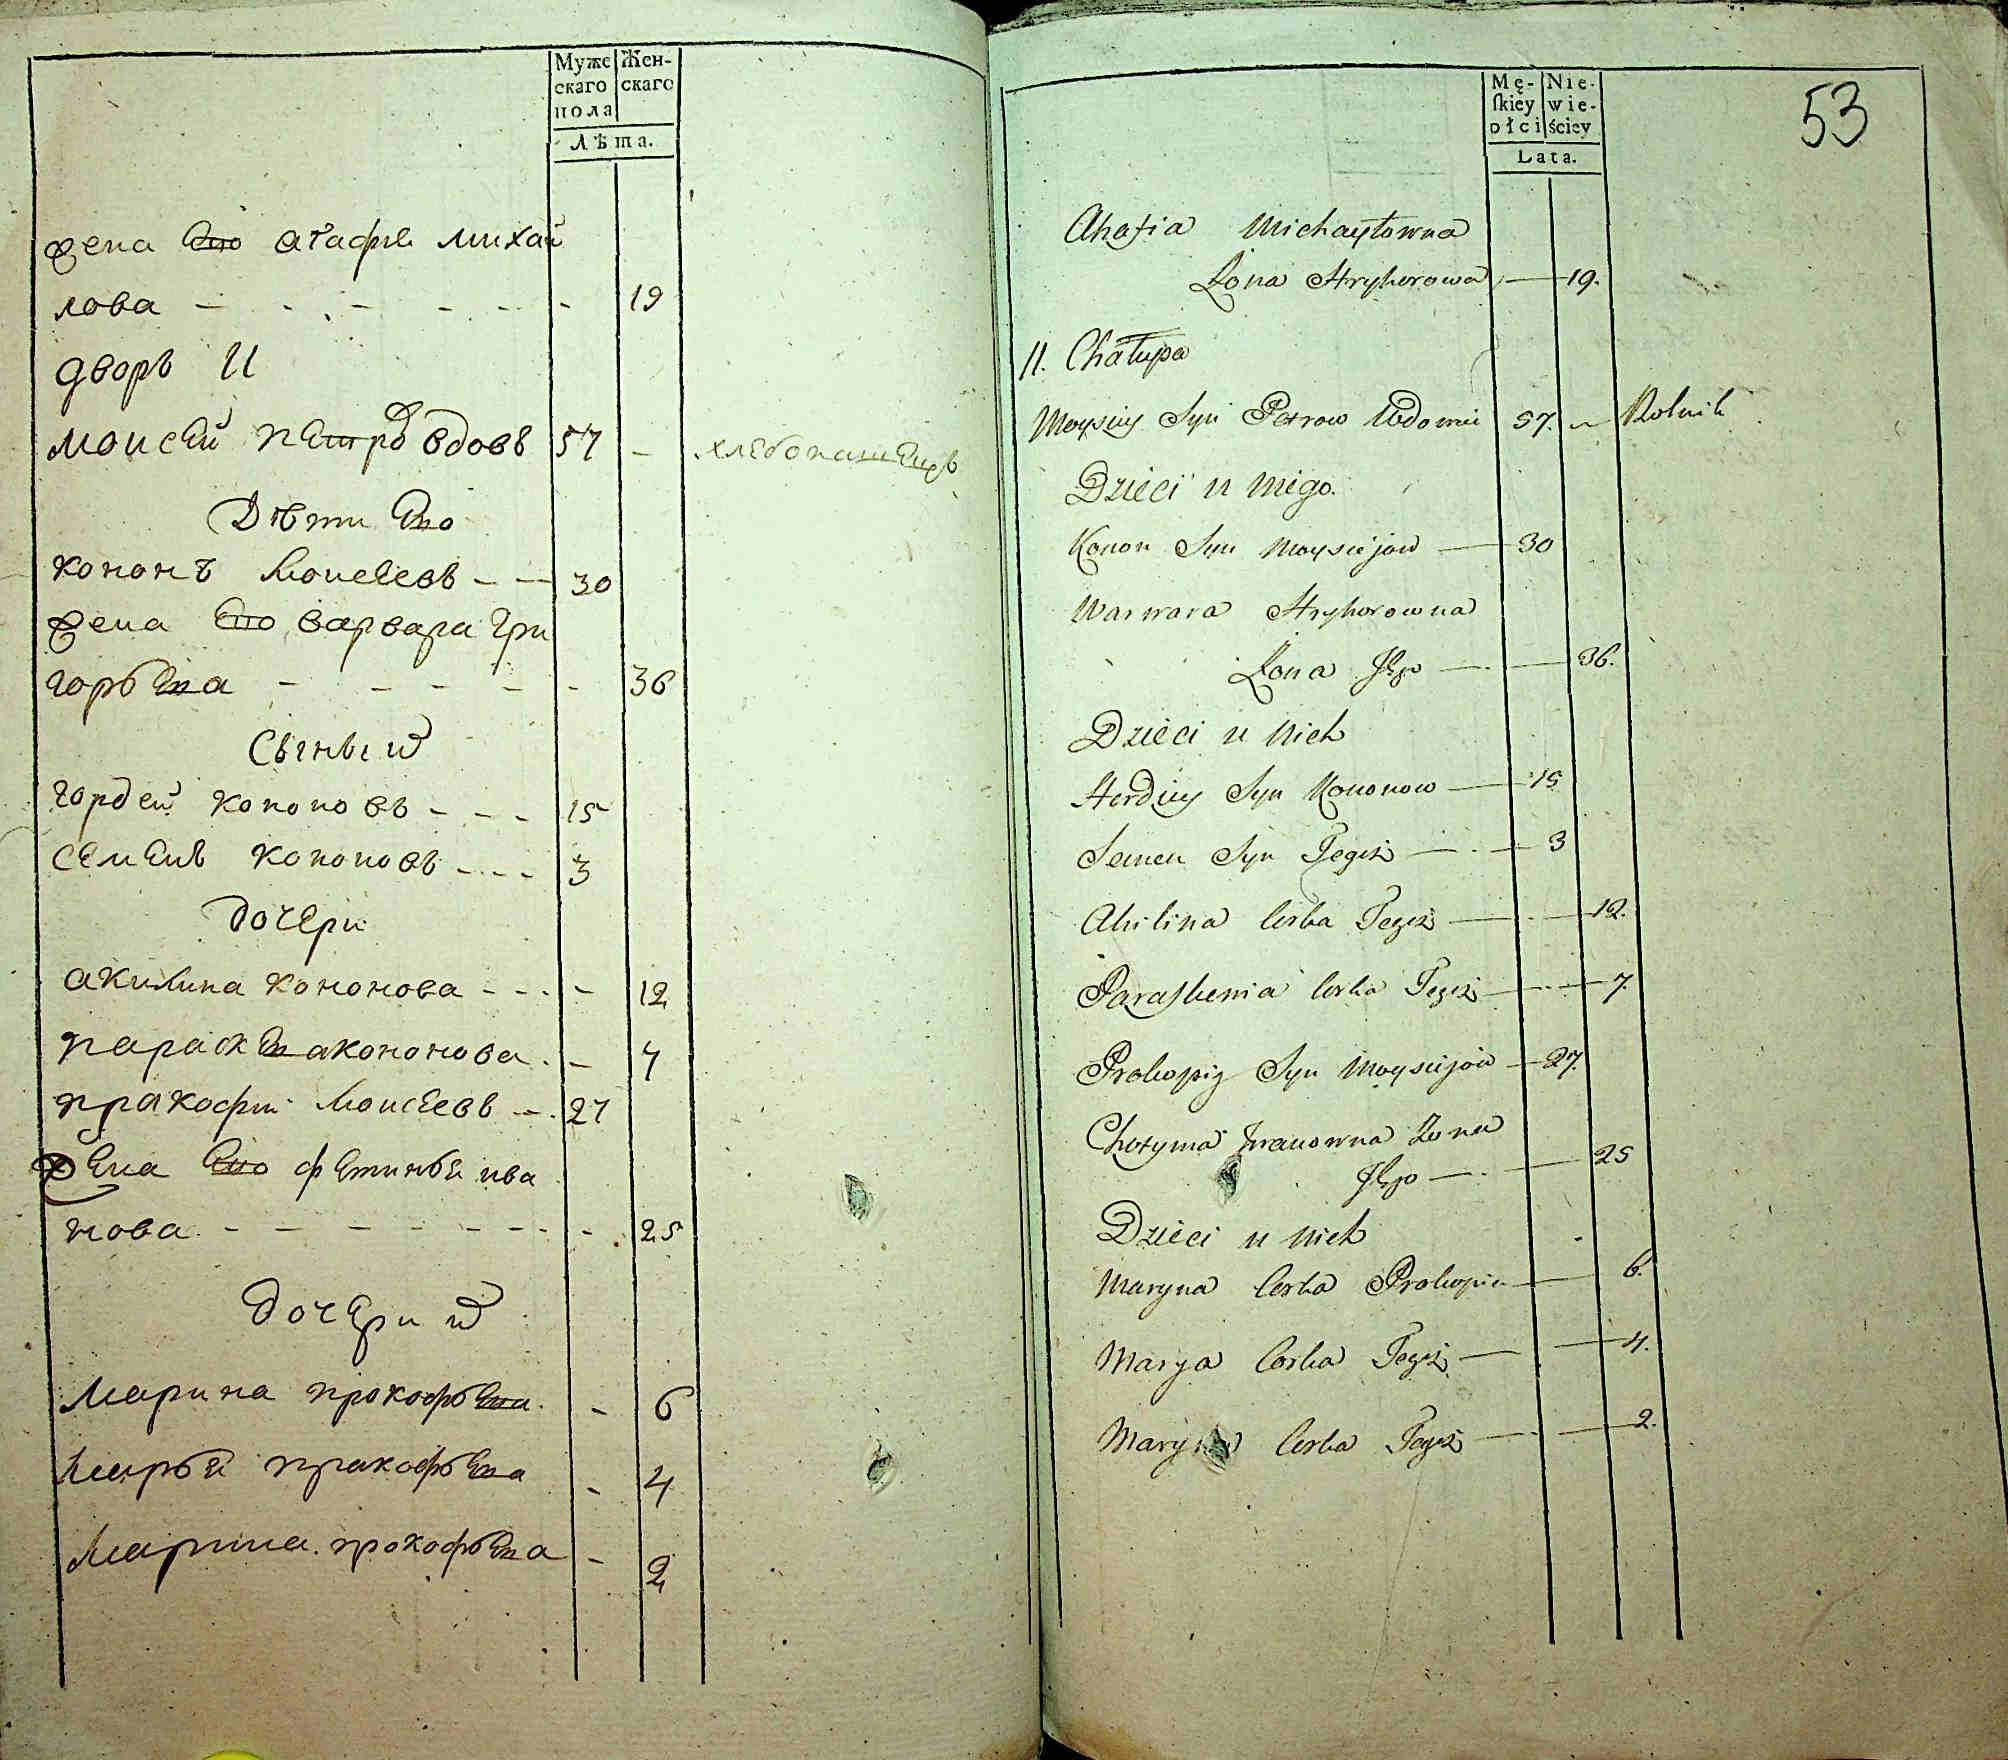 Муже
скаго
пола
Жен-
скаго
Лѣта.
жена Его агафьѣ михай
лова 19
дворъ 11
моисей петровъ вдовъ 57 хлебопашецъ
Дѣти Его
кононъ Моисеевъ 30
жена Его варвара гри
горьева 36
Сыны их
гордей кононовъ 15
семенъ кононовъ 3
дочери
акилина кононова 12
параскева кононова 7
пракофий Моисеевъ 27
жена Его фетинья ива
нова 25
дочери их
Марина прокофьева 6
Марья пракофьева 4
Марина прокофьева 2
53
Mę-
skiey
płci
Nie-
wie-
ściey
Lata.
Ahafia Michayłowna
Żona Hryhorowa 19.
11. Chałupa
Moysiey Syn Petrow Wdowiec 57. Rolnik
Dzieci u niego.
Konon Syn Moysiejow 30
Warwara Hryhorowna
Żona Jego 36.
Dzieci u nich
Hordiey Syn Kononow 15
Semen Syn Tegoż 3
Akilina Corka Tegoż 12.
Paraskewia Corka Tegoż 7.
Prokopiy Syn Moysiejow 27.
Chotyma Iwanowna Żona
Jego 25
Dzieci u nich
Maryna Corka Prokopia 6.
Marya Corka Tegoż 4.
Maryna Corka Tegoż 2.